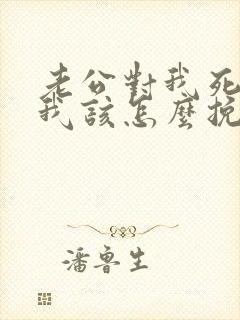 老公對我死
我該怎麼挽
潘魯生